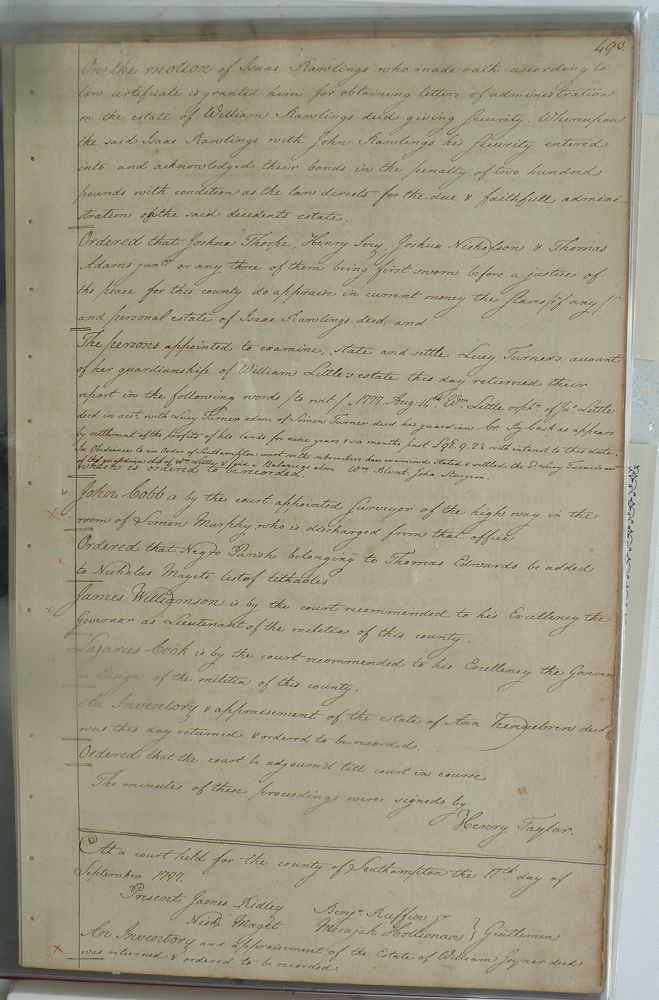 493.
On the motion of Isaac Rawlings who made oath according to
law certificate is granted him for obtaining letters of administration
on the estate of William Rawlings decd giving Security. Whereupon
the said Isaac Rawlings with John Rawlings his Security entered
into and acknowledged their bonds in the penalty of two hundred
pounds with condition as the law directs for the due & faithfull adminis-
stration of the said decedents estate.
Ordered that Joshua Thorpe, Henry Ivey, Joshua Nicholson & Thomas
Adams junr. or any three of them being first sworn before a justice of
the peace for this county do appraise in current money the slaves /if any/
and personal estate of Isaac Rawlings decd and
The persons appointed to examine, state and settle Lucy Turner's account
of her guardianship of William Little's estate this day returned their
report in the following words /to wit/ 1797. Aug: Wm. Little orphn. of Jno. Little
decd. in acct. with Lucy Turner adm. of Simon Turner decd his guardian Cr. By Cash as appears
by settlement of the profits of his lands for nine years & six months past with interest to this date.
In Obedience to an Order of Southampton court we the subscribers have examined stated & settled the Lucy Turner's acct
of the guardianship of Wm Little & find a Balance as above Wm Blunt, John
which is ordered to be recorded.
John Cobb is by the court appointed Surveyor of the high way in the
room of Simon Murphy who is discharged from that office
Ordered that Negro Parish belonging to Thomas Edwards be added
to Nicholas Magets list of tithables
James Williamson is by the court recommended to his Excellency the
Governor as Lieutenant of the militia of this county.
Lazarus Cook is by the court recommended to his Excellency the Governor
as Ensign of the militia of this county.
An Inventory & appraisement of the estate of Ann decd
was this day returned & ordered to be recorded
Ordered that the court be adjourn'd till court in course
The minutes of these proceedings were signed by
Henry Taylor.
At a court held for the county of Southampton the 17th day of
September 1797.
Present James Ridley Benjn. Ruffin jr
Nichs Maget Micajah Holliman } Gentlemen
An Inventory and appraisement of the Estate of William Joyner decd
was returned & ordered to be recorded